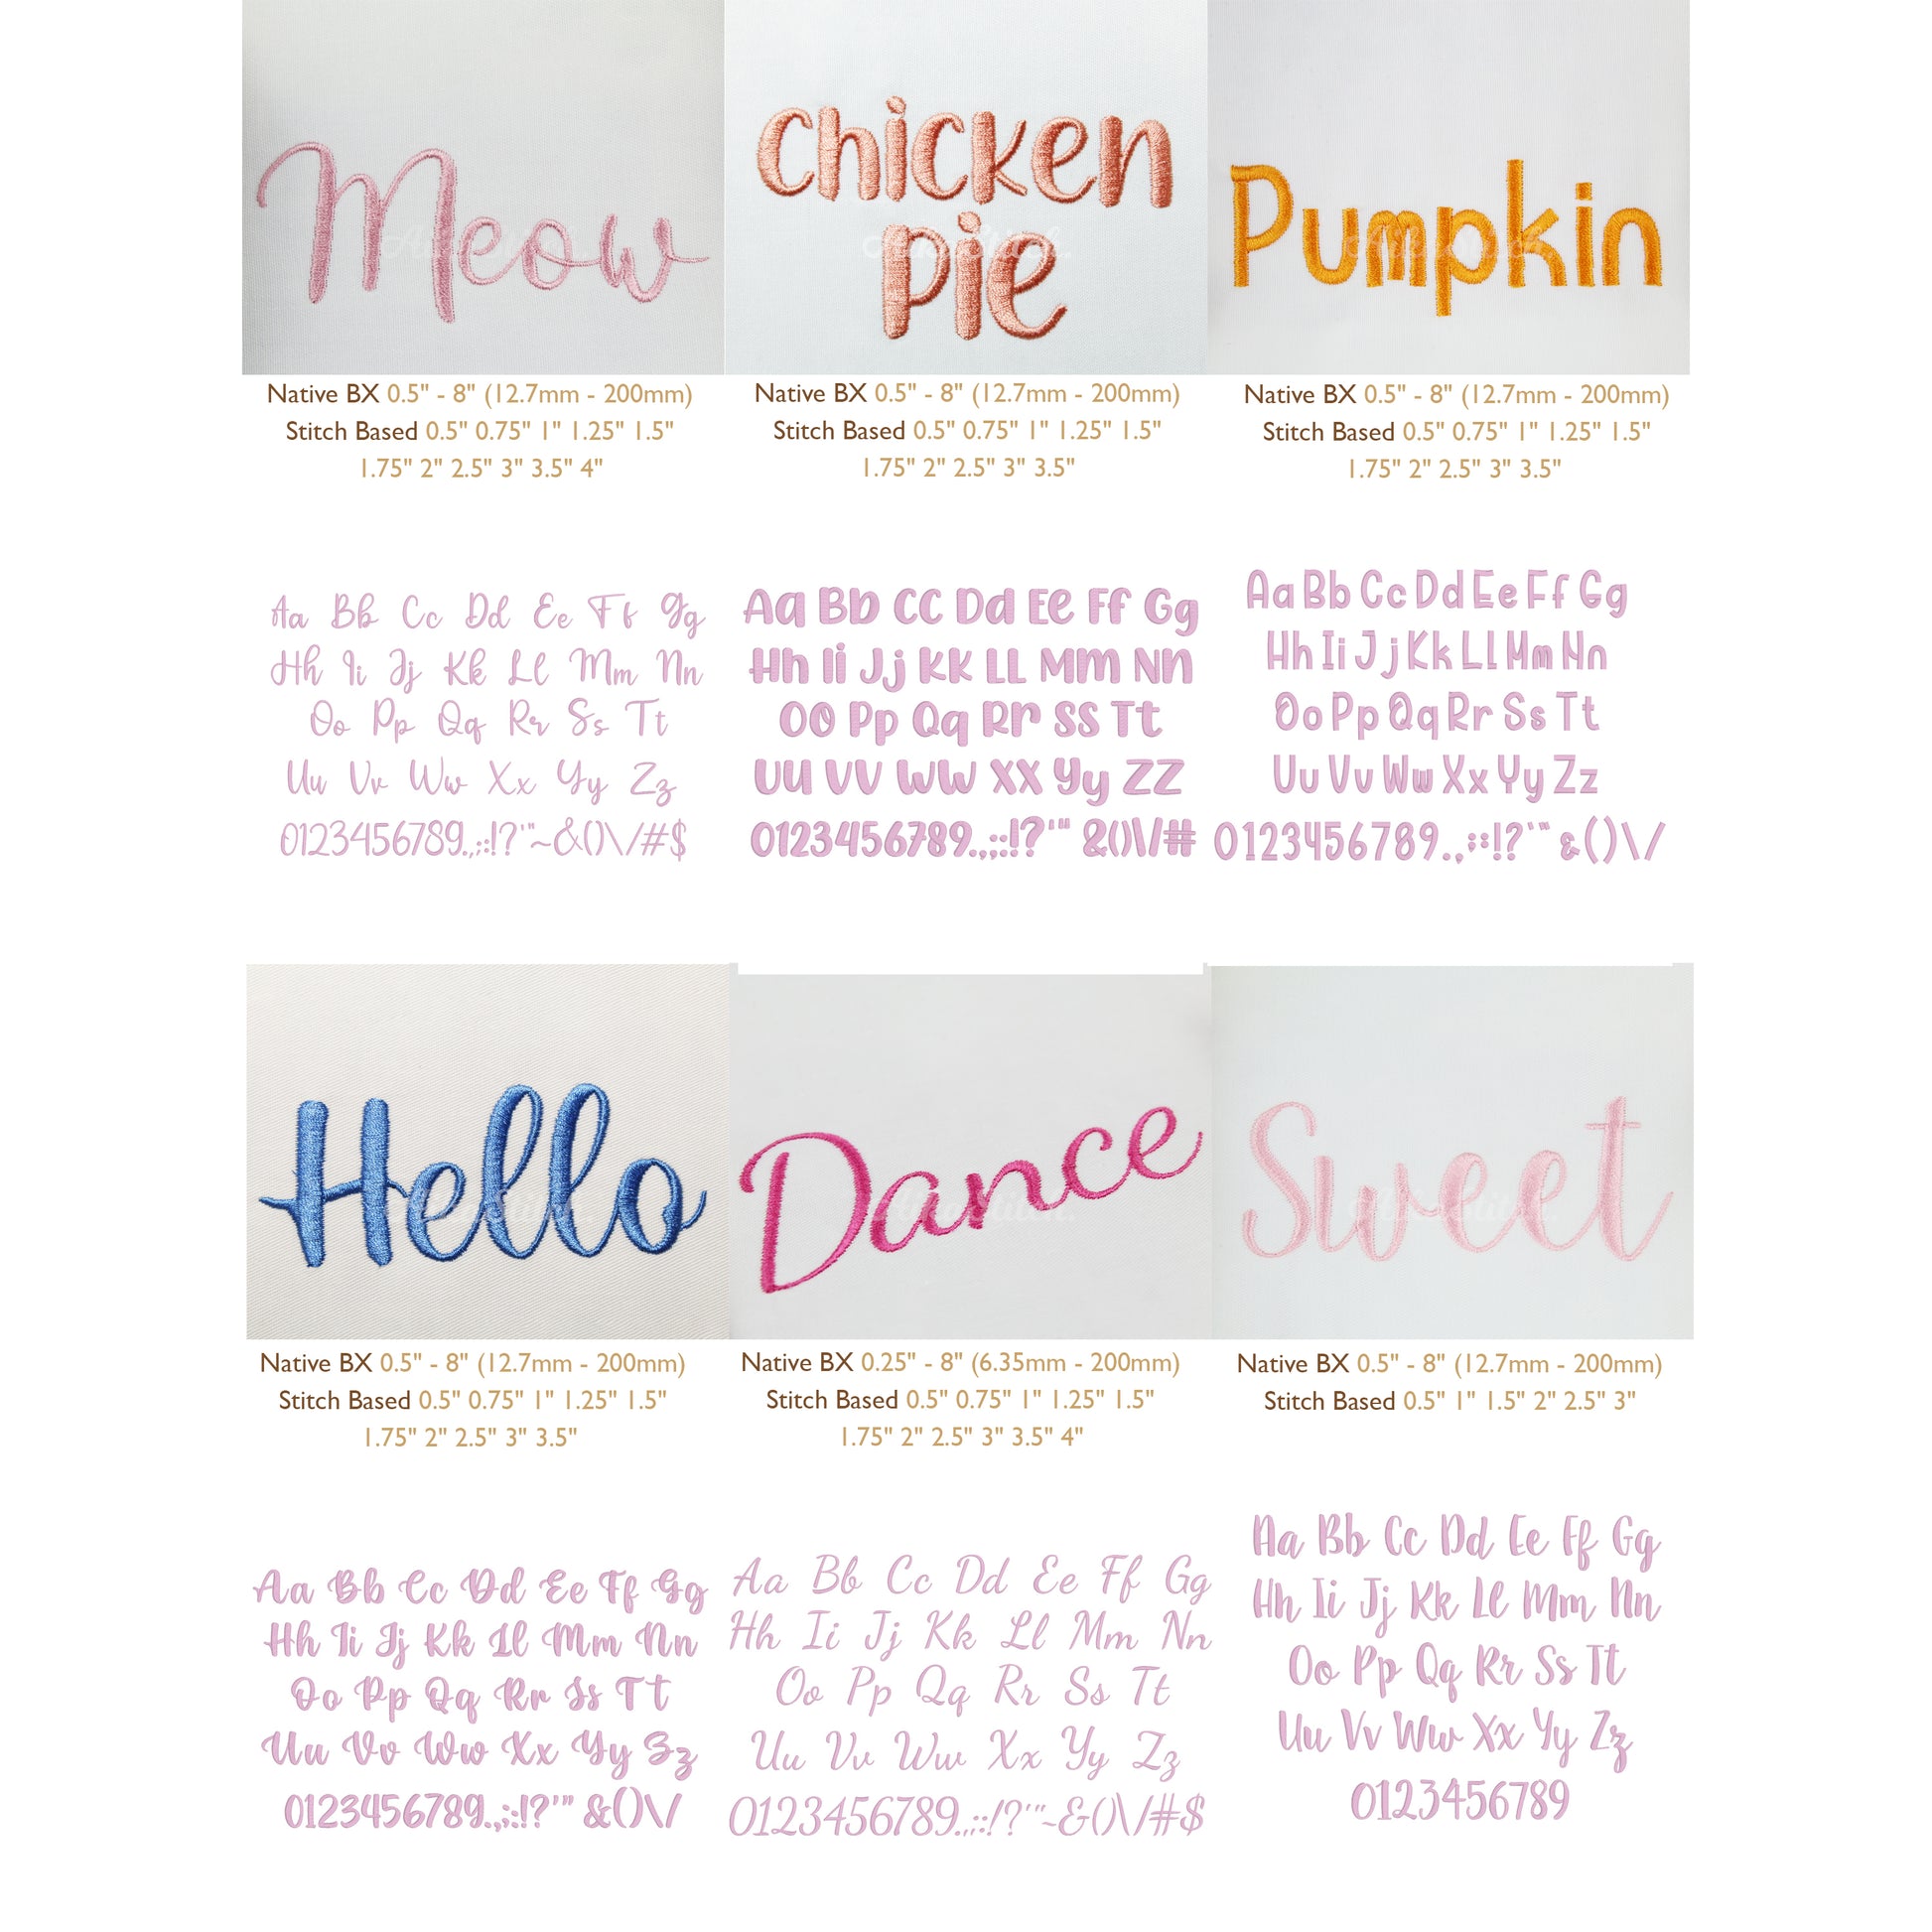 Meow
Chicken
Pie
Pumpkin
Native BX 0.5" - 8" (12.7mm - 200mm)
Stitch Based 0.5" 0.75" 1" 1.25" 1.5"
1.75" 2" 2.5" 3" 3.5" 4"
Native BX 0.5" - 8" (12.7mm - 200mm)
Stitch Based 0.5" 0.75" 1" 1.25" 1.5"
1.75" 2" 2.5" 3" 3.5"
Native BX 0.5" - 8" (12.7mm - 200mm)
Stitch Based 0.5" 0.75" 1" 1.25" 1.5"
1.75" 2" 2.5" 3" 3.5"
Aa Bb Cc Dd Ee Ff Gg
Hh Ii Jj Kk Ll Mm Nn
Oo Pp Qq Rr Ss Tt
Uu Vv Ww Xx Yy Zz
0123456789.,;:!?'"~&()\/#$
Aa Bb Cc Dd Ee Ff Gg
Hh Ii Jj Kk LL Mm Nn
Oo Pp Qq Rr Ss Tt
Uu Vv Ww Xx Yy Zz
0123456789.,;:!?'" &()\/#
Aa Bb Cc Dd Ee Ff Gg
Hh Ii Jj Kk Ll Mm Nn
Oo Pp Qq Rr Ss Tt
Uu Vv Ww Xx Yy Zz
0123456789.,;:!?'" &()\/
Hello
Dance
Sweet
Native BX 0.5" - 8" (12.7mm - 200mm)
Stitch Based 0.5" 0.75" 1" 1.25" 1.5"
1.75" 2" 2.5" 3" 3.5"
Native BX 0.25" - 8" (6.35mm - 200mm)
Stitch Based 0.5" 0.75" 1" 1.25" 1.5"
1.75" 2" 2.5" 3" 3.5" 4"
Native BX 0.5" - 8" (12.7mm - 200mm)
Stitch Based 0.5" 1" 1.5" 2" 2.5" 3"
Aa Bb Cc Dd Ee Ff Gg
Hh Ii Jj Kk Ll Mm Nn
Oo Pp Qq Rr Ss Tt
Uu Vv Ww Xx Yy Zz
0123456789.,;:!?'" &()\/
Aa Bb Cc Dd Ee Ff Gg
Hh Ii Jj Kk Ll Mm Nn
Oo Pp Qq Rr Ss Tt
Uu Vv Ww Xx Yy Zz
0123456789.,;:!?'"~&()\/#$
Aa Bb Cc Dd Ee Ff Gg
Hh Ii Jj Kk Ll Mm Nn
Oo Pp Qq Rr Ss Tt
Uu Vv Ww Xx Yy Zz
0123456789